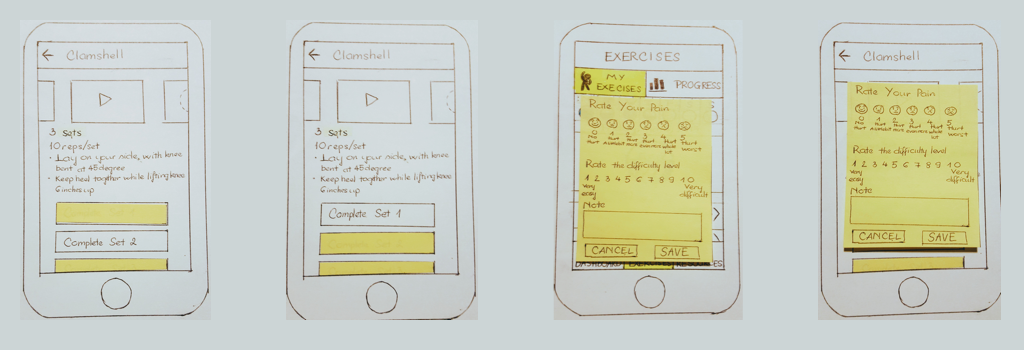 ← Clamshell
3 sets
10 reps/set
• Lay on your side, with knee
bent at 45 degree
• Keep heel together while lifting knee
6 inches up
Complete Set 2
← Clamshell
3 sets
10 reps/set
• Lay on your side, with knee
bent at 45 degree
• Keep heel together while lifting knee
6 inches up
Complete Set 1
EXERCISES
MY
EXECISES
PROGRESS
Rate Your Pain
0 1 2 3 4 5
No Hurt Hurt Hurt Hurt Hurt
hurt whole worst
lot
Rate the difficulty level
1 2 3 4 5 6 7 8 9 10
Very Very
easy difficult
Note
CANCEL SAVE
DASHBOARD
← Clamshell
Rate Your Pain
0 1 2 3 4 5
No Hurt Hurt Hurt Hurt Hurt
hurt whole worst
lot
Rate the difficulty level
1 2 3 4 5 6 7 8 9 10
Very Very
easy difficult
Note
CANCEL SAVE